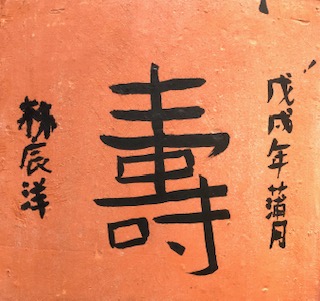 戊戌年蒲月
壽
林辰洋